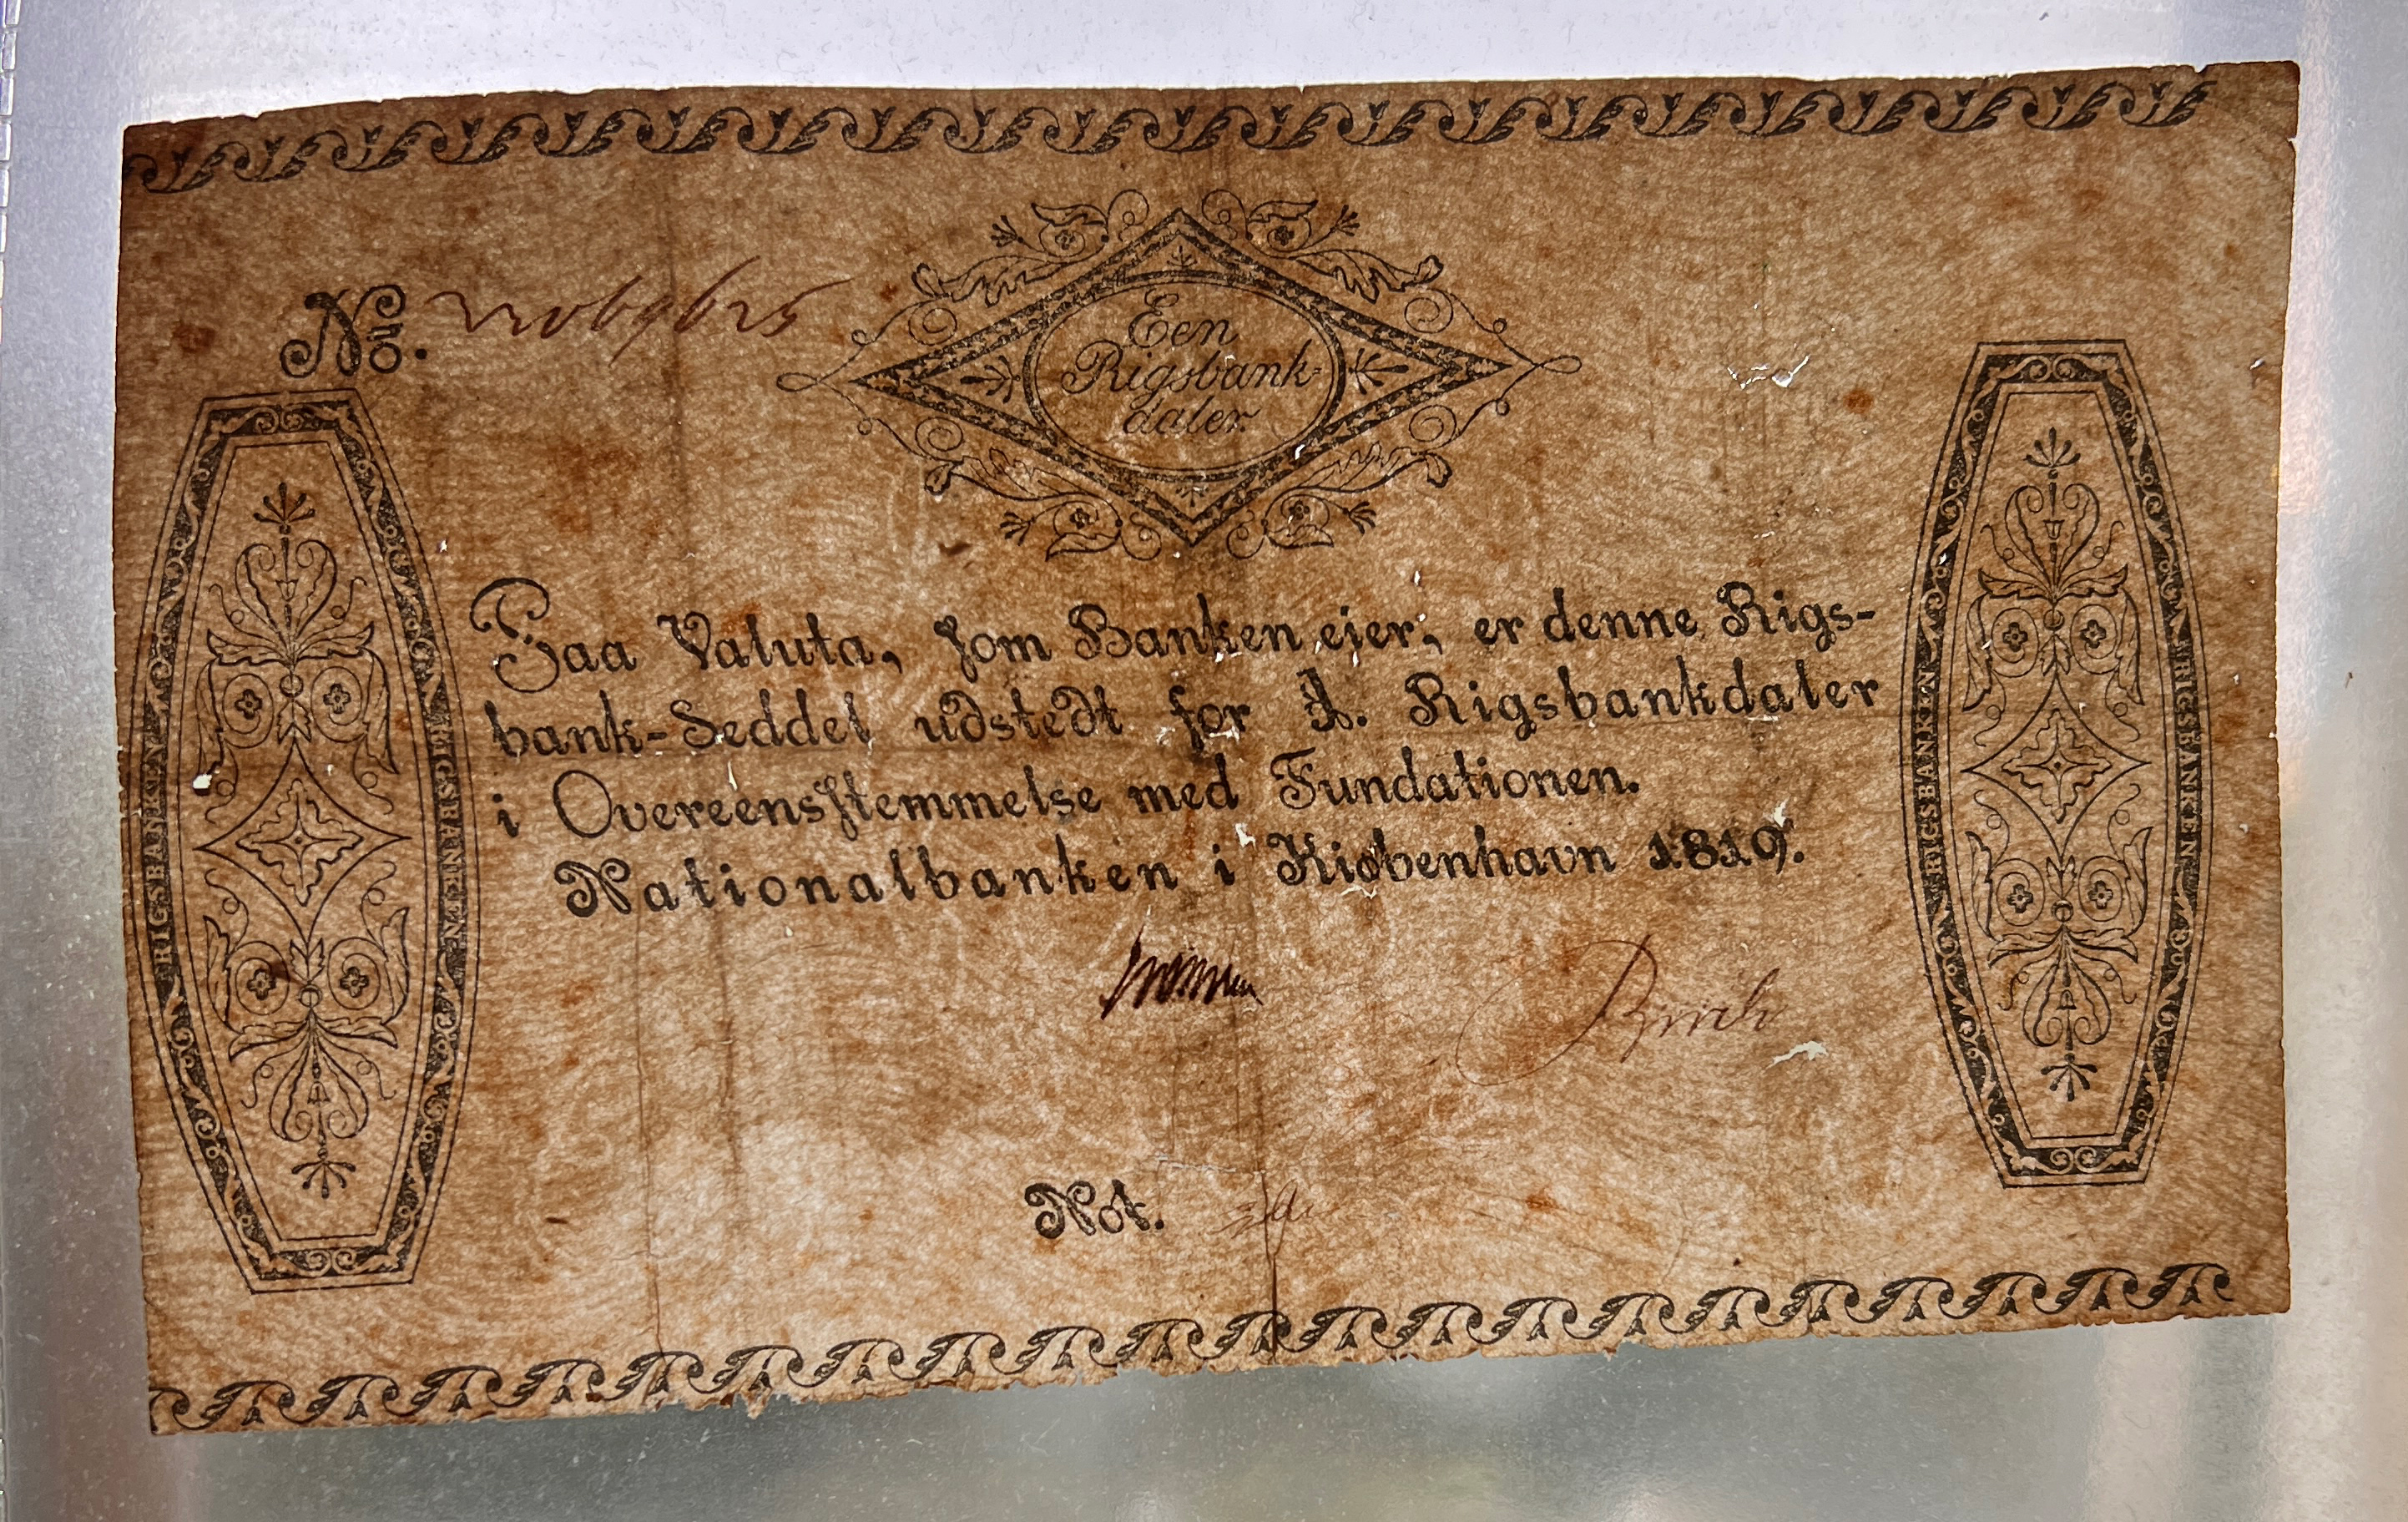 No.
Een
Rigsbank-
daler
Paa Valuta, som Banken eier, er denne Rigs-
bank-Seddel udstedt for 1. Rigsbankdaler
i Overeensstemmelse med Fundationen.
Nationalbanken i Kiøbenhavn 1819.
Not.
RIGSBANKEN
RIGSBANKEN
RIGSBANKEN
RIGSBANKEN